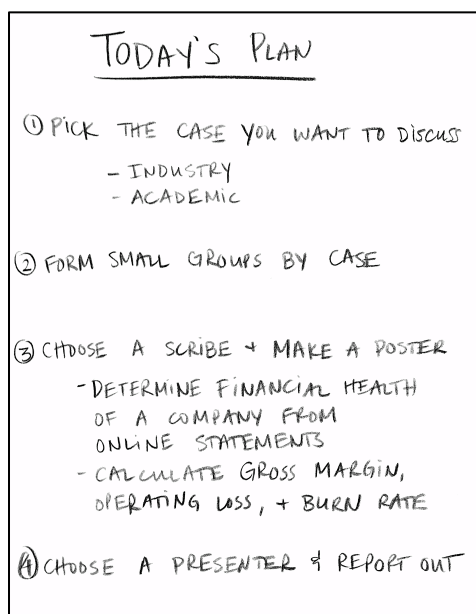 TODAY'S PLAN
① PICK THE CASE YOU WANT TO DISCUSS
- INDUSTRY
- ACADEMIC
② FORM SMALL GROUPS BY CASE
③ CHOOSE A SCRIBE + MAKE A POSTER
- DETERMINE FINANCIAL HEALTH
OF A COMPANY FROM
ONLINE STATEMENTS
- CALCULATE GROSS MARGIN,
OPERATING LOSS, + BURN RATE
④ CHOOSE A PRESENTER & REPORT OUT